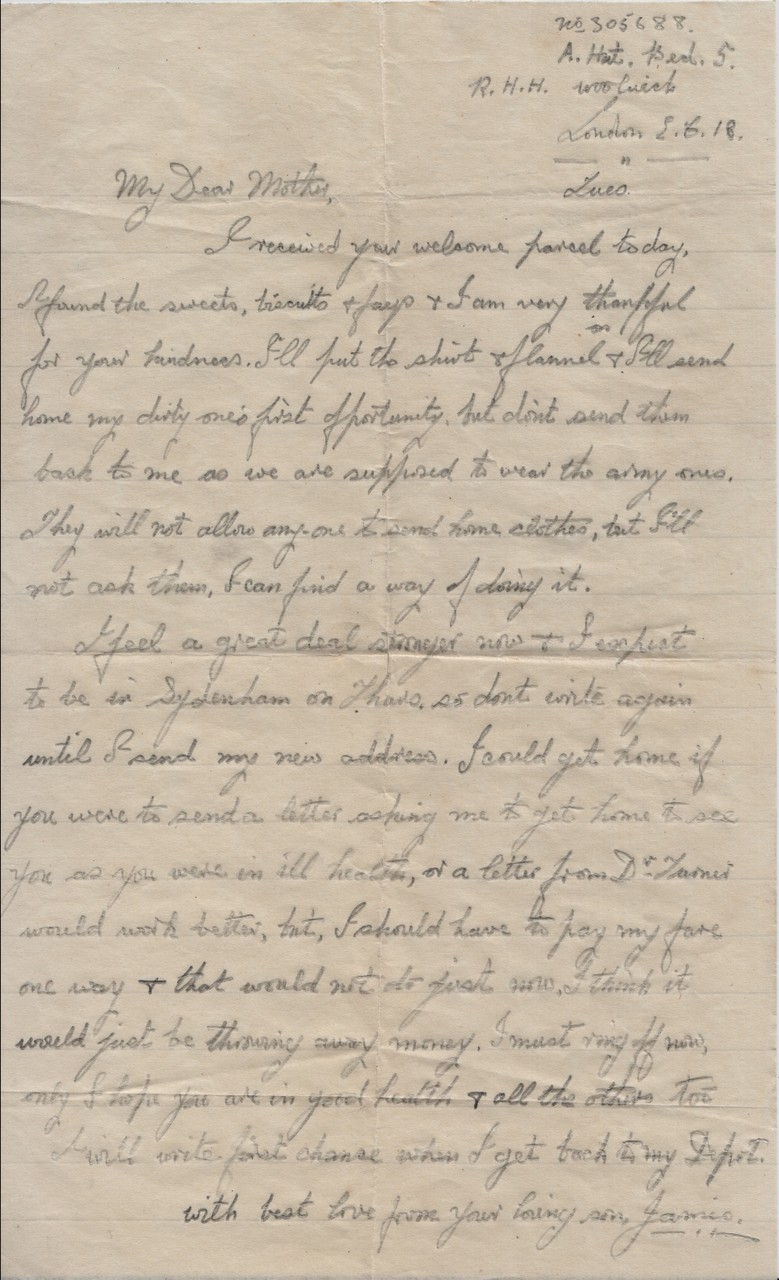 No 305688.
A. Hut. Bed. 5.
R. H. H. Woolwich
London S.E. 18.
"
My Dear Mother, Tues.
I received your welcome parcel today,
I found the sweets, biscuits & fags & I am very thankful
for your kindness. I'll put the shirt & flannel on & I'll send
home my dirty one's first opportunity, but don't send them
back to me as we are supposed to wear the army ones.
They will not allow any-one to send home clothes, but I'll
not ask them, I can find a way of doing it.
I feel a great deal stronger now & I expect
to be in Sydenham on Thurs. so dont write again
until I send my new address. I could get home if
you were to send a letter asking me to get home to see
you as you were in ill health, or a letter from Dr. Turner
would work better, but, I should have to pay my fare
one way & that would not do just now, I think it
would just be throwing away money. I must ring off now,
only I hope you are in good health & all the others too
I will write first chance when I get back to my Depot.
with best love from your loving son, James.